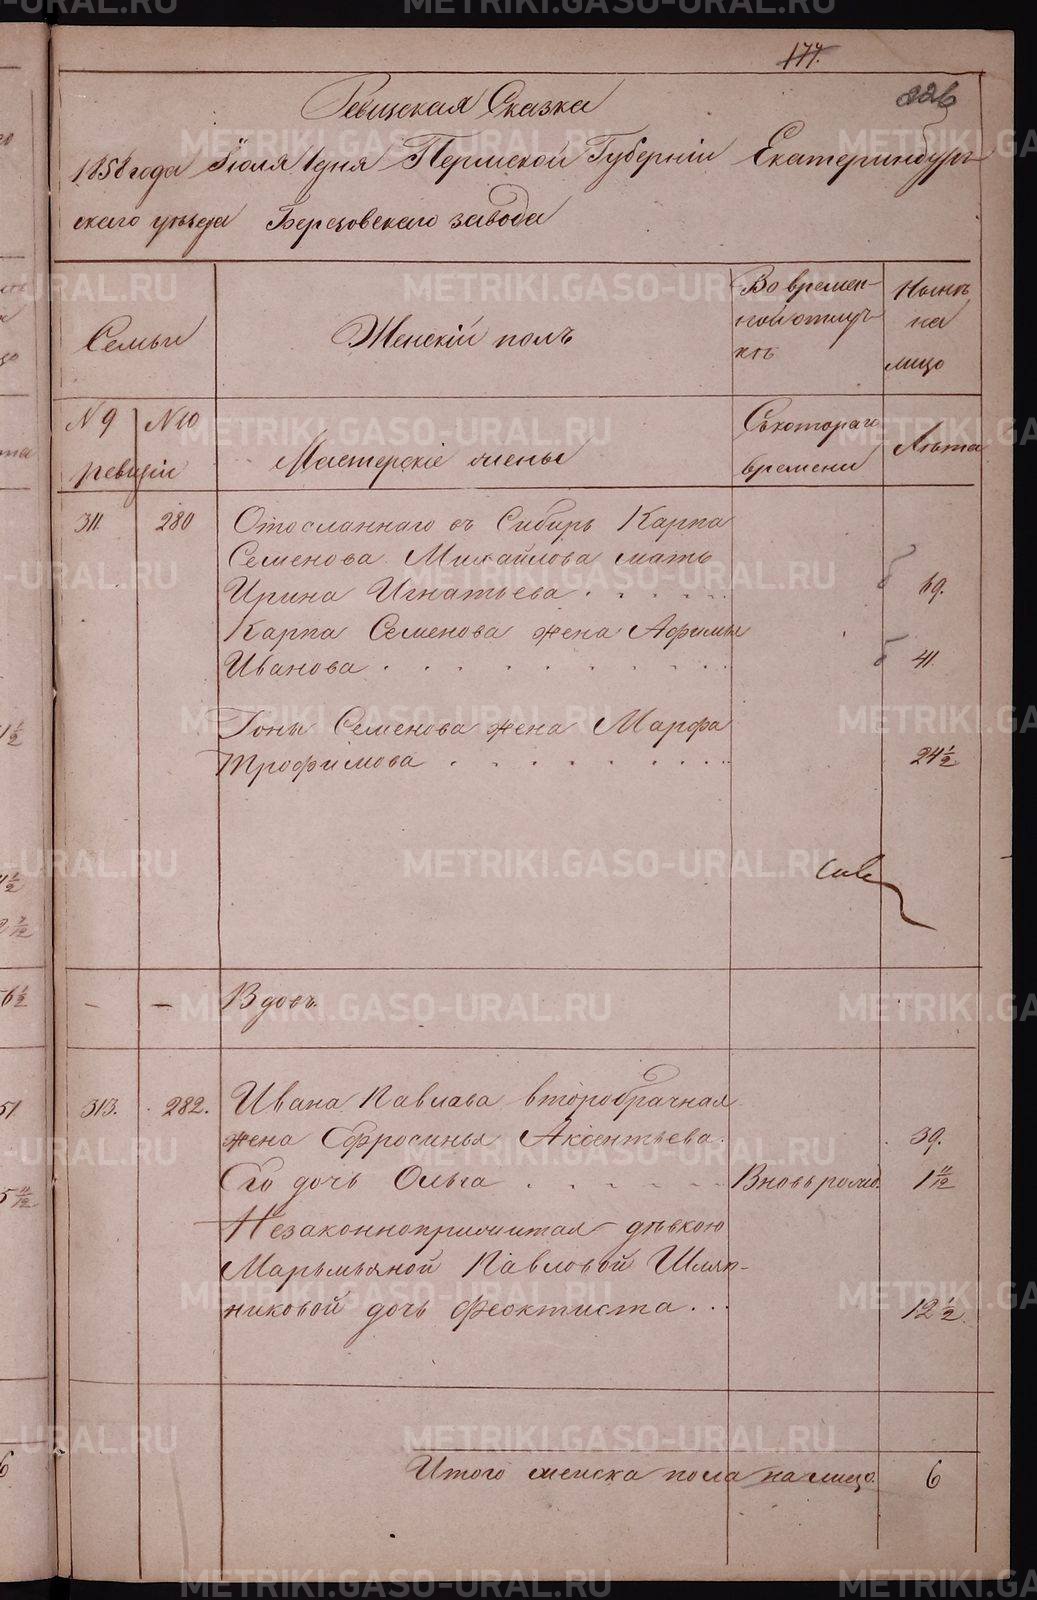 177.
226
Ревизская Сказка
1858 года Іюля 1 дня Пермской Губерніи Екатеринбург-
скаго уѣзда Березовскаго завода
Семьи
Женскій полъ
Во времен-
ной отлуч-
кѣ
Нынѣ
на
лицо
N 9
N 10
ревизіи
Мастерскіе жены
Съ котораго
времени
Лѣта
311.
280
Отосланнаго въ Сибирь Карпа
Семенова Михайлова мать
Ирина Игнатьева
б
69.
Карпа Семенова жена Афимья
Иванова
б
41.
Семенова жена Марфа
Трофимова
24 1/2
— — Вдовъ.
313. 282.
Ивана Павлова второбрачная
жена Ефросинья Аксентьева.
39.
Его дочь Ольга
Вновь рожд.
1 11/12
Незаконноприжитая дѣвкою
Марьмьяной Павловой Шляп-
никовой дочь Феоктиста
12 1/2
Итого женска пола на лицо.
6
METRIKI.GASO-URAL.RU